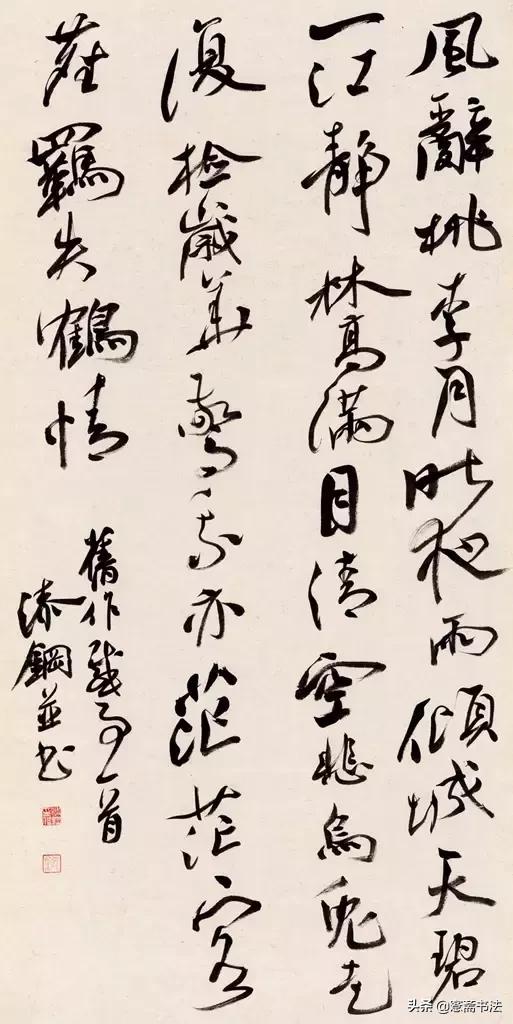 風辭桃李月昨夜雨傾城天碧
一江靜林高滿目清空悲烏兔走
復檢歲華驚我亦茫茫客
塵羈失鶴情
舊作感事一首
漆鋼並書
头条 @斋书法